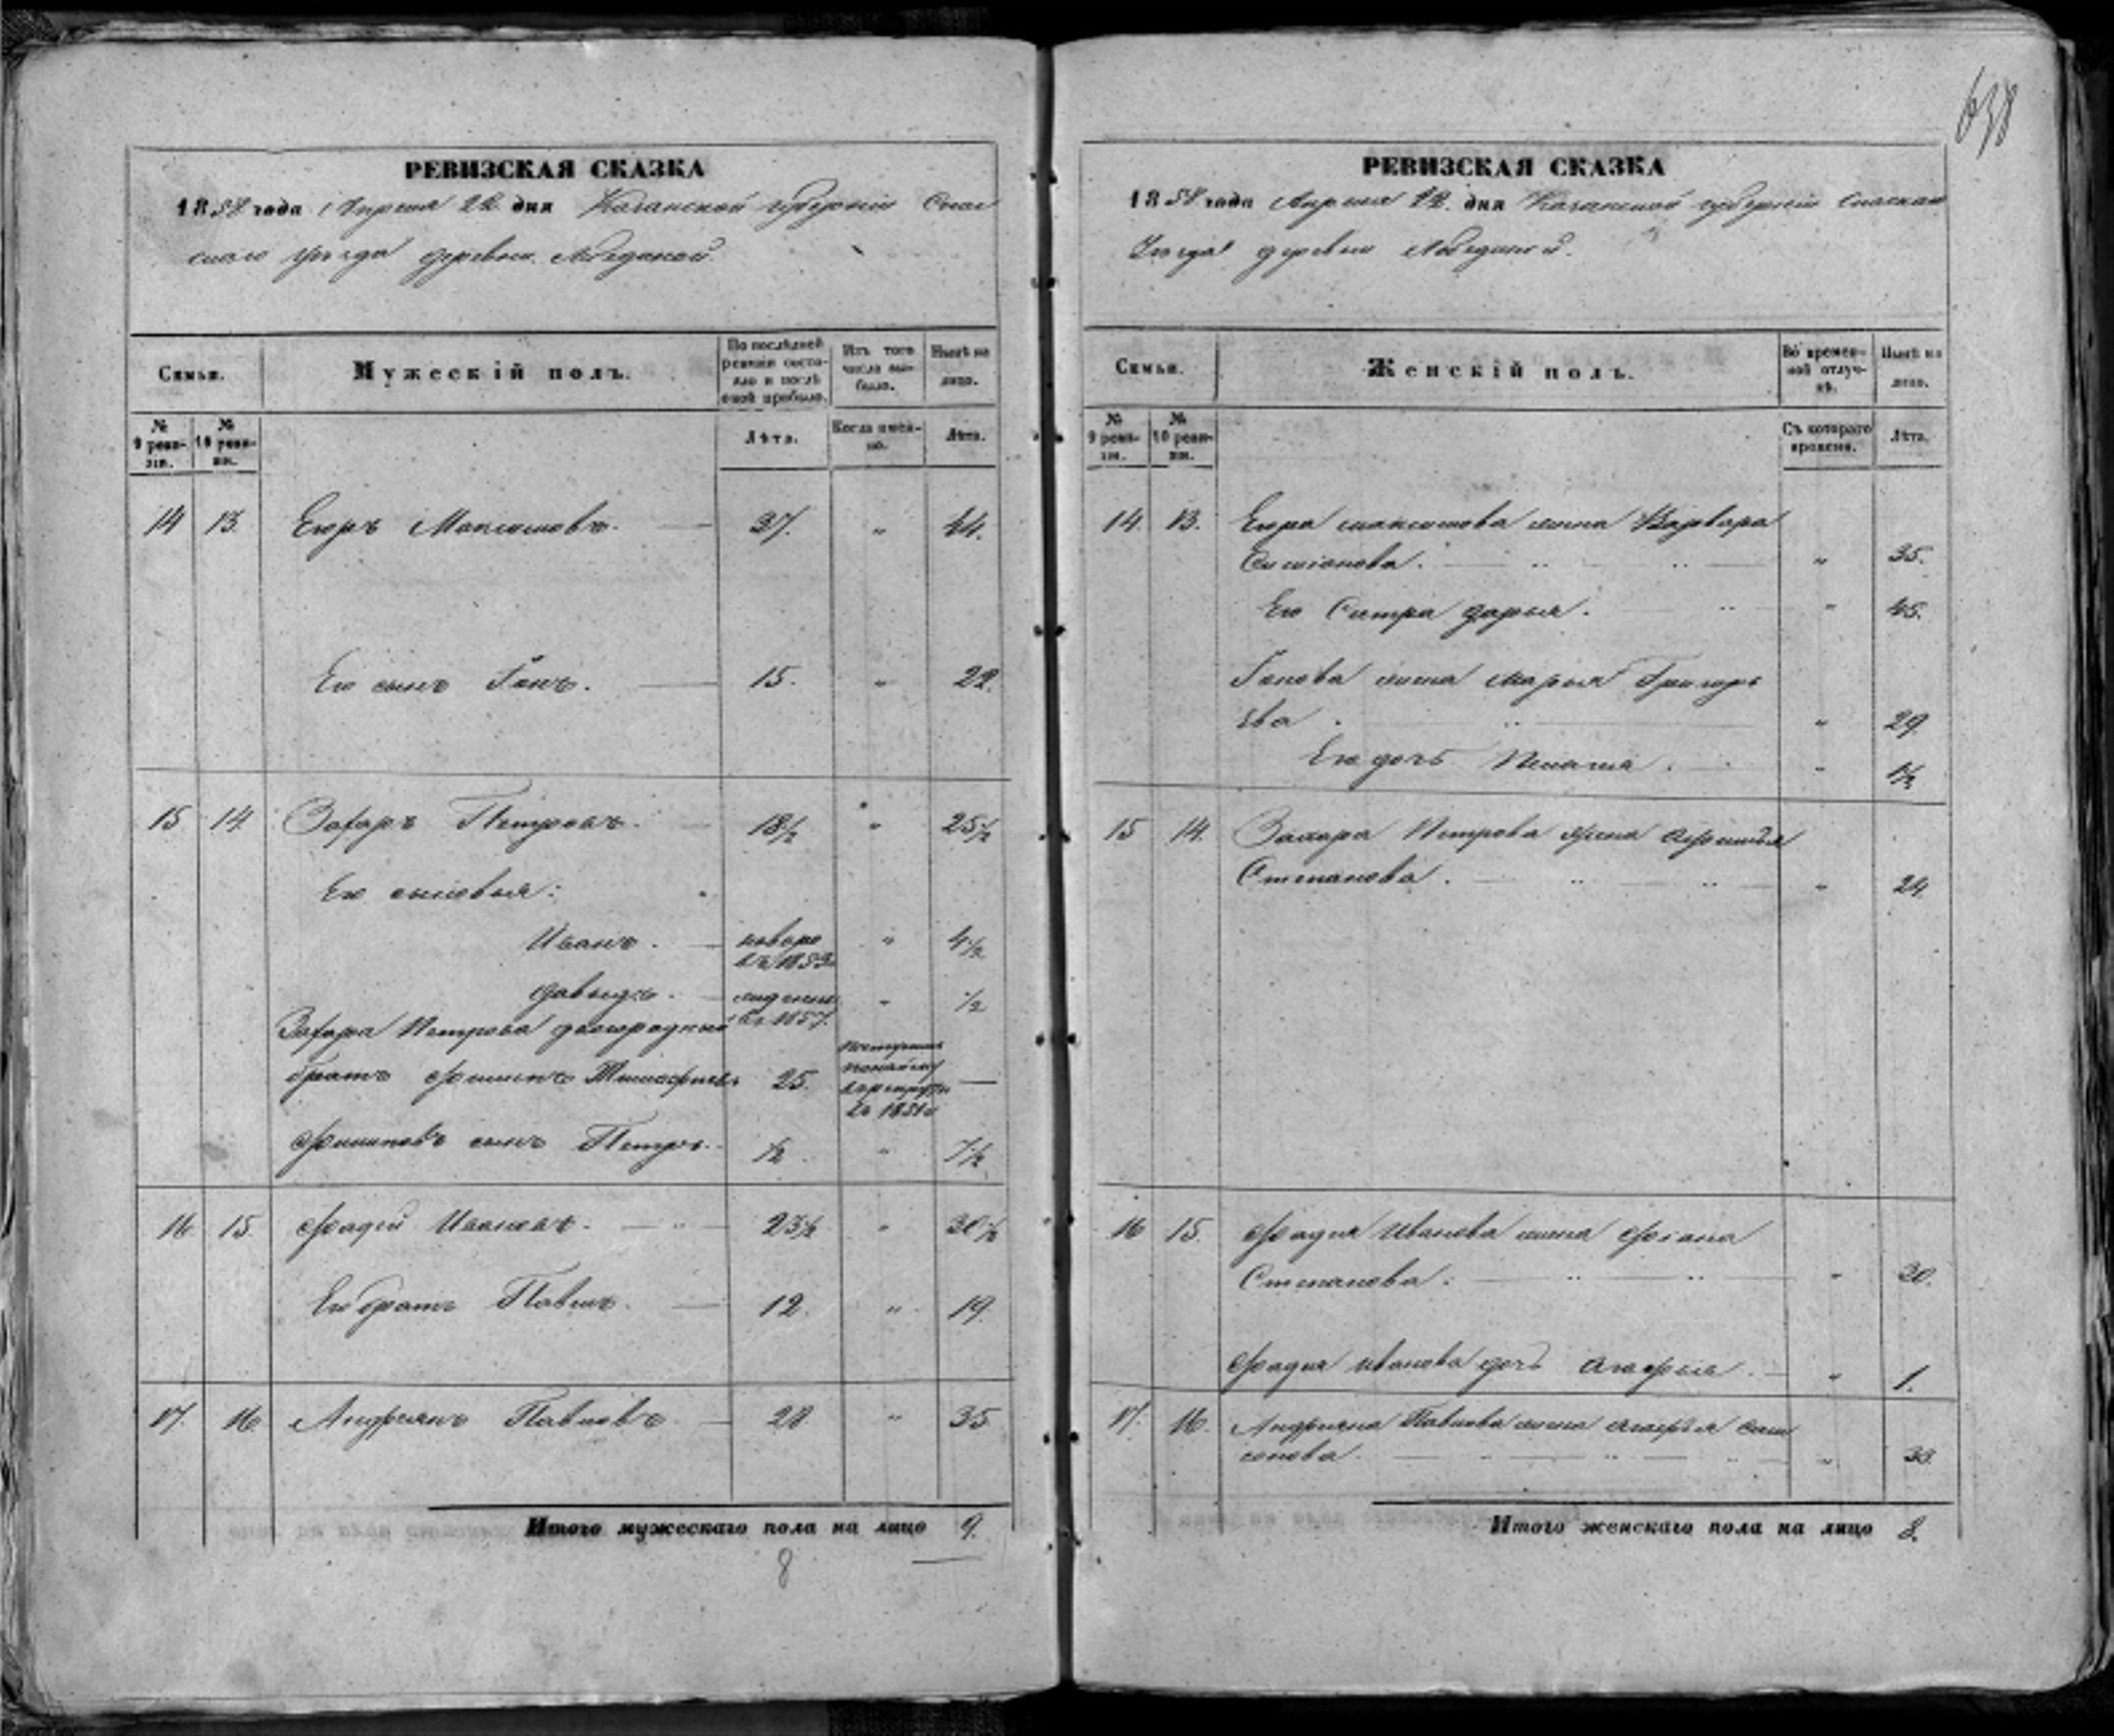 638
РЕВИЗСКАЯ СКАЗКА
1858 года Апреля 22 дня Казанской губернiи Спас
скаго уезда деревни
Семьи.
Мужескiй полъ.
По послѣдней ревизiи состояло и послѣ оной прибыло.
Изъ того числа выбыло.
Нынѣ на лицо.
№ 9 ревизiи.
№ 10 ревизiи.
Лѣта.
Когда именно.
Лѣта.
14 13. Егоръ Максимовъ. 37. " 44.
Его сынъ 15. " 22.
15 14. Захаръ Петровъ. 18½ " 25½
Его сыновья:
Иванъ. новоро " 4½
Давыдъ. жденны въ 1857. " ½
Захара Петрова двоюродный
братъ Филипъ 25. въ рекруты въ 1851 —
Филиповъ сынъ Петръ. ½ " 7½
16 15. Фадей Ивановъ. 23½ " 30½
Его братъ Павелъ. 12. " 19.
17. 16. Андриянъ Павловъ 28 " 35
Итого мужескаго пола на лицо 9.
8
РЕВИЗСКАЯ СКАЗКА
1858 года Апреля 22. дня Казанской губернiи Спаскаго
Уезда деревни
Семьи.
Женскiй полъ.
Во временной отлучкѣ.
Нынѣ на лицо.
№ 9 ревизiи.
№ 10 ревизiи.
Съ котораго времени.
Лѣта.
14. 13. Егора Максимова жена Варвара
" 35.
Его Сестра Дарья. " 45.
жена Марья Григорь
ева. " 29
Его дочь " 1½
15 14. Захара Петрова жена
Степанова. " 24.
16 15. Фадея Иванова жена
Степанова. " 30.
Фадея Иванова дочь Агафья. " 1.
17. 16. Андрияна Павлова жена Агафья Сам
сонова. " 33.
Итого женскаго пола на лицо 8.